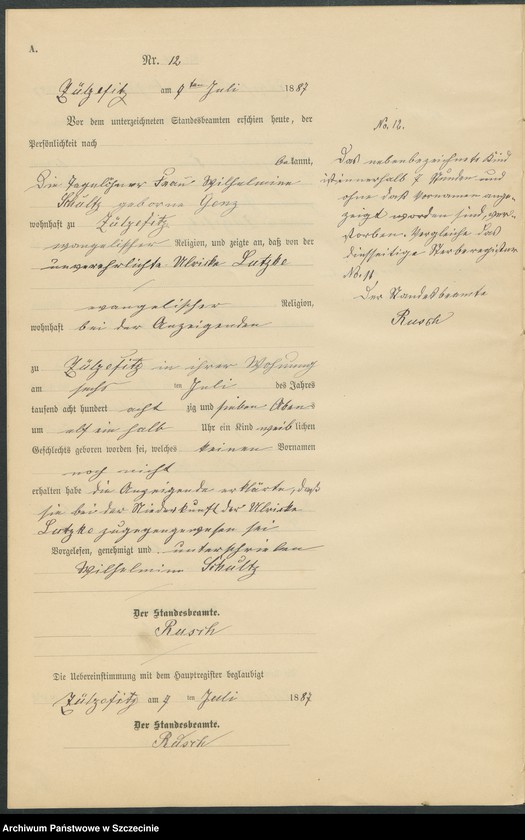 A.
Nr. 12
Zülzefitz am 9ten Juli 1887
Vor dem unterzeichneten Standesbeamten erschien heute, der
Persönlichkeit nach
bekannt,
Die Tagelöhner Frau Wilhelmine
Schultz geborne Genz
wohnhaft zu Zülzefitz
evangelischer Religion, und zeigte an, daß von der
unverehelichte Ulricke Lutzke
evangelischer Religion,
wohnhaft bei der Anzeigenden
zu Zülzefitz in ihrer Wohnung
am sechs ten Juli des Jahres
tausend acht hundert acht zig und sieben Abends
um elf ein halb Uhr ein Kind weiblichen
Geschlechts geboren worden sei, welches keinen Vornamen
noch nicht
erhalten habe die Anzeigende erklärte, daß
sie bei der Niederkunft der Ulricke
Lutzke zugegengewesen sei
Vorgelesen, genehmigt und unterschrieben
Wilhelmine Schultz
Der Standesbeamte.
Rusch
Die Uebereinstimmung mit dem Hauptregister beglaubigt
Zülzefitz am 9 ten Juli 1887
Der Standesbeamte.
Rusch
No. 12.
Das nebenbezeichnete Kind
ist innerhalb Stunden und
ohne daß Vornamen ange-
zeigt worden sind, ver-
storben. Vergleiche das
diesseitige Sterberegister
No. 11
Der Standesbeamte
Rusch
Archiwum Państwowe w Szczecinie